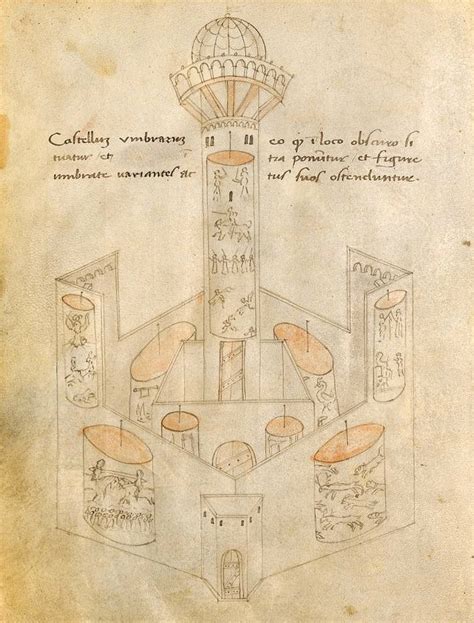 Castelluz vmbraruz eo ꝙ ī loco obscuro si
tuatur et ī tra ponūtur et figure
umbrate variantes ac tus suos ostenduntur.